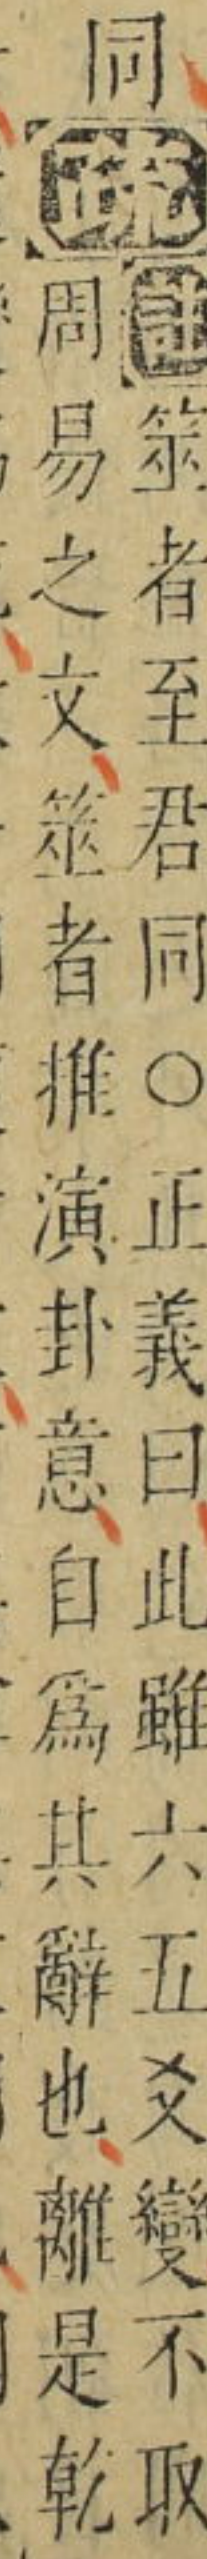 同
疏
註筮者至君同○正義曰此雖六五爻變不取
周易之文筮者推演卦意自爲其辭也離是乾